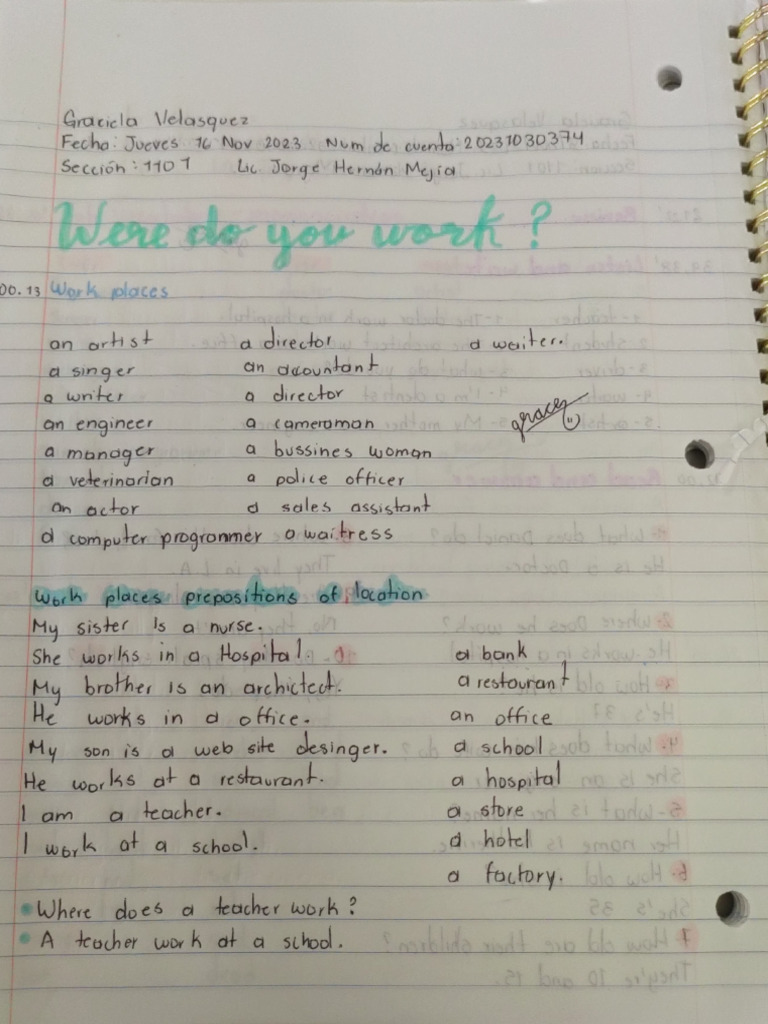 Graciela Velasquez
Fecha: Jueves 16 Nov 2023 Num de cuenta: 20231030374
Sección: 1101 Lic. Jorge Hernán Mejía
Were do you work?
00.13 Work places
an artist a director a waiter.
a singer an acountant
a writer a director
an engineer a cameraman graces
a manager a bussines woman
a veterinarian a police officer
an actor a sales assistant
a computer programmer a waitress
Work places prepositions of location
My sister Is a nurse.
She works in a Hospital. a bank
My brother is an archictect. a restaurant
He works in a office. an office
My son is a web site desinger. a school
He works at a restaurant. a hospital
I am a teacher. a store
I work at a school. a hotel
a factory.
Where does a teacher work?
A teacher work at a school.